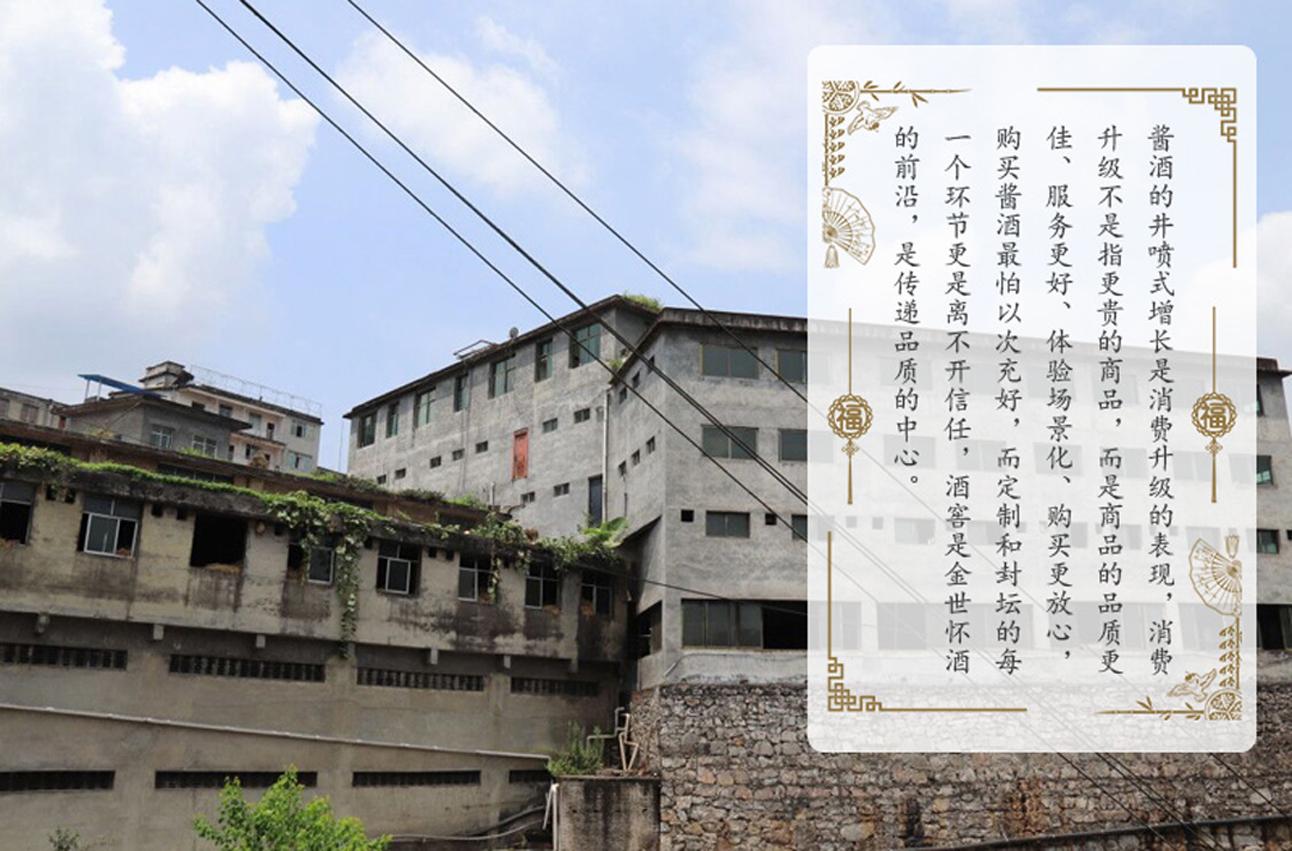 酱酒的井喷式增长是消费升级的表现，消费
升级不是指更贵的商品，而是商品的品质更
佳、服务更好、体验场景化、购买更放心，
购买酱酒最怕以次充好，而定制和封坛的每
一个环节更是离不开信任，酒窖是金世怀酒
的前沿，是传递品质的中心。
福
福